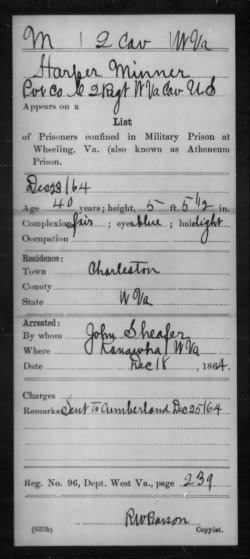 M | 2 Cav | W Va
Harper Minner
Pvt Co. C 2 Rgt W Va Cav U S
Appears on a
List
of Prisoners confined in Military Prison at
Wheeling, Va. (also known as Atheneum
Prison.
Dec 23/64
Age 40 years; height, 5 ft. 5 1/2 in.
Complexion fair ; eyes blue ; hair light
Occupation
Residence:
Town Charleston
County
State W Va
Arrested:
By whom John Sheafer
Where Kanawha W Va
Date Dec 18 , 1864.
Charges
Remarks Sent To Cumberland Dec 25/64
Reg. No. 96, Dept. West Va., page 239
R W Parson
(639b) Copyist.